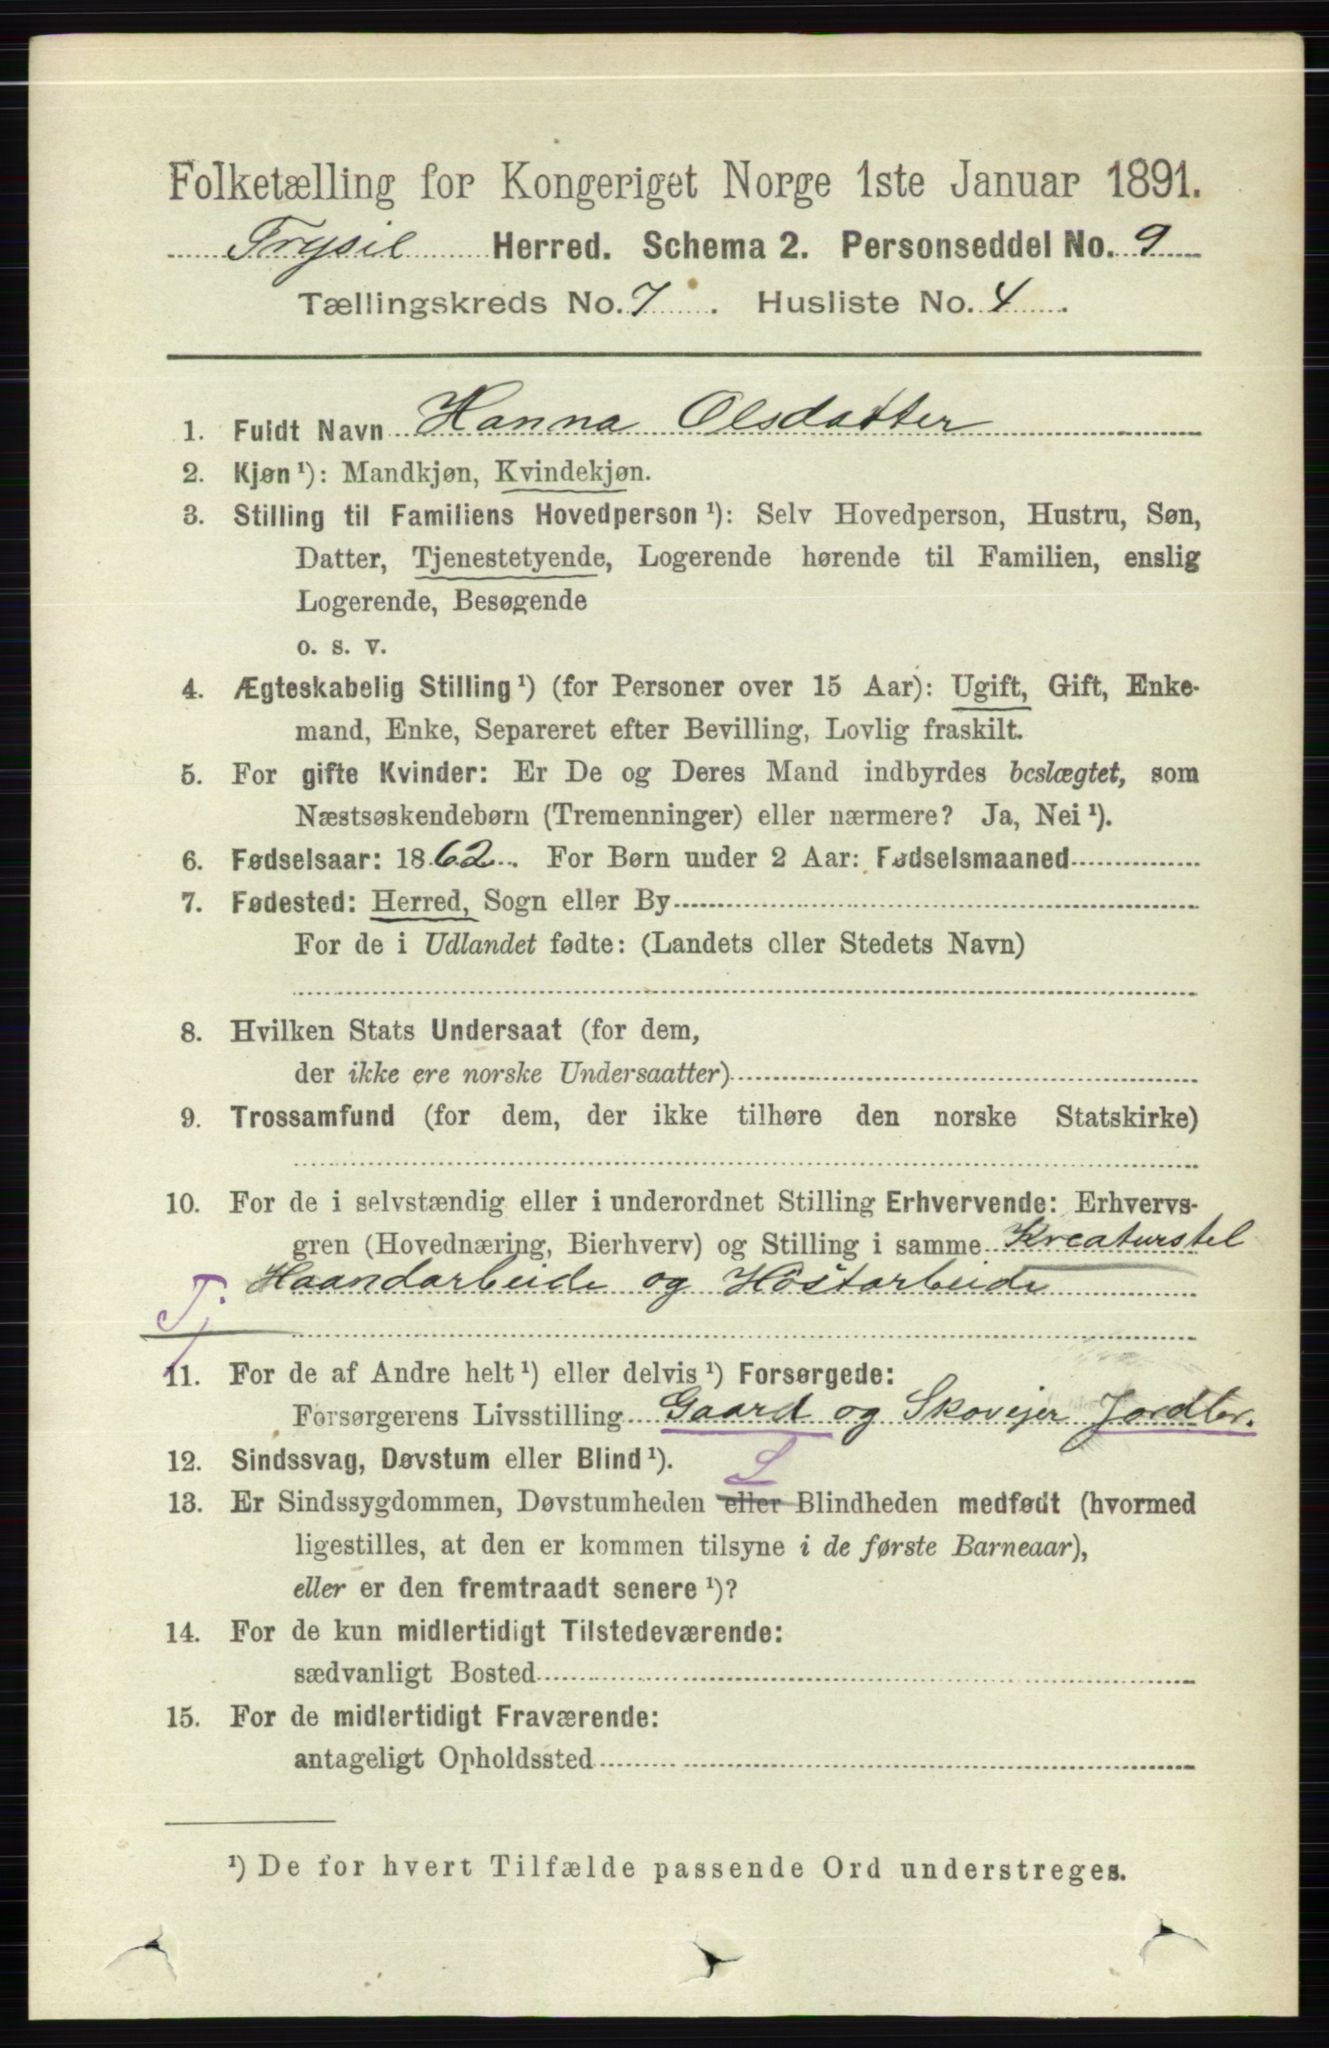 Folketælling for Kongeriget Norge 1ste Januar 1891.
Trysil Herred. Schema 2. Personseddel No. 9
Tællingskreds No. 7. Husliste No. 4.
1. Fuldt Navn Hanna Olsdatter
2. Kjøn ¹): Mandkjøn, Kvindekjøn.
3. Stilling til Familiens Hovedperson ¹): Selv Hovedperson, Hustru, Søn,
Datter, Tjenestetyende, Logerende hørende til Familien, enslig
Logerende, Besøgende
o. s. v.
4. Ægteskabelig Stilling ¹) (for Personer over 15 Aar): Ugift, Gift, Enke-
mand, Enke, Separeret efter Bevilling, Lovlig fraskilt.
5. For gifte Kvinder: Er De og Deres Mand indbyrdes beslægtet, som
Næstsøskendebørn (Tremenninger) eller nærmere? Ja, Nei ¹).
6. Fødselsaar: 1862. For Børn under 2 Aar: Fødselsmaaned
7. Fødested: Herred, Sogn eller By
For de i Udlandet fødte: (Landets eller Stedets Navn)
8. Hvilken Stats Undersaat (for dem,
der ikke ere norske Undersaatter)
9. Trossamfund (for dem, der ikke tilhøre den norske Statskirke)
10. For de i selvstændig eller i underordnet Stilling Erhvervende: Erhvervs-
gren (Hovednæring, Bierhverv) og Stilling i samme Kreaturstel
Haandarbeide og Höstarbeide
Tj
11. For de af Andre helt ¹) eller delvis ¹) Forsørgede:
Forsørgerens Livsstilling Gaard og Skovejer Jordbr.
12. Sindssvag, Døvstum eller Blind ¹).
S
13. Er Sindssygdommen, Døvstumheden eller Blindheden medfødt (hvormed
ligestilles, at den er kommen tilsyne i de første Barneaar),
eller er den fremtraadt senere ¹)?
14. For de kun midlertidigt Tilstedeværende:
sædvanligt Bosted
15. For de midlertidigt Fraværende:
antageligt Opholdssted
¹) De for hvert Tilfælde passende Ord understreges.